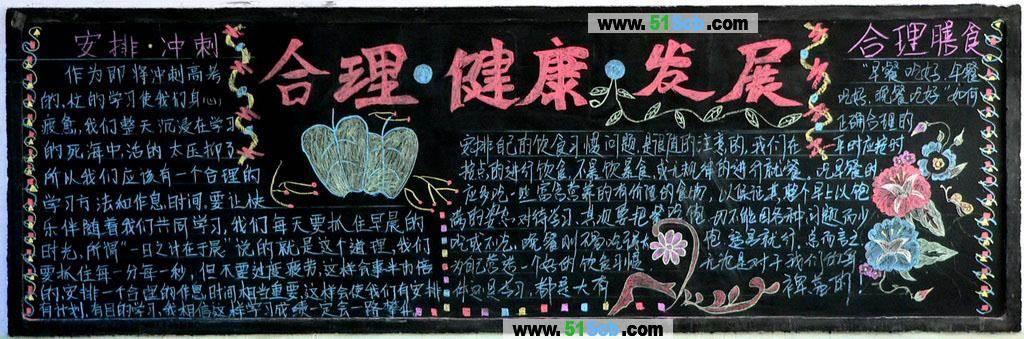 www.515cb.com
合理·健康·发展
安排·冲刺
作为即将冲刺高考
的,忙的学习使我们身心
疲惫,我们整天沉浸在学习
的死海中,活的太压抑了
所以我们应该有一个合理的
学习方法和作息时间,要让快
乐伴随着我们共同学习,我们每天要抓住早晨的
时光,所谓“一日之计在于晨”说的就是这个道理,我们
要抓住每一分每一秒,但不要过度疲劳,这样会事半功倍
的,安排一个合理的作息时间相当重要,这样会使我们有安排
有计划,有目的学习,我相信这样学习成绩一定会一路攀升
合理膳食
“早餐吃好,午餐
吃好,晚餐吃好”如何
正确合理的
安排自己的饮食习惯问题,是很值的注意的,我们在
一年时应按时
按点的进行饮食,不暴饮暴食,
的进行就餐,吃早餐时
应多吃一些富含营养的有价值的食物,以保证其整个早上以饱
满的
对待学习,
因各种问题而少
吃或不吃,晚餐则不易吃
为自己营造一个好的饮食习惯
无论是对于我们的身
体还是学习,都是大有
裨益的!
www.515cb.com